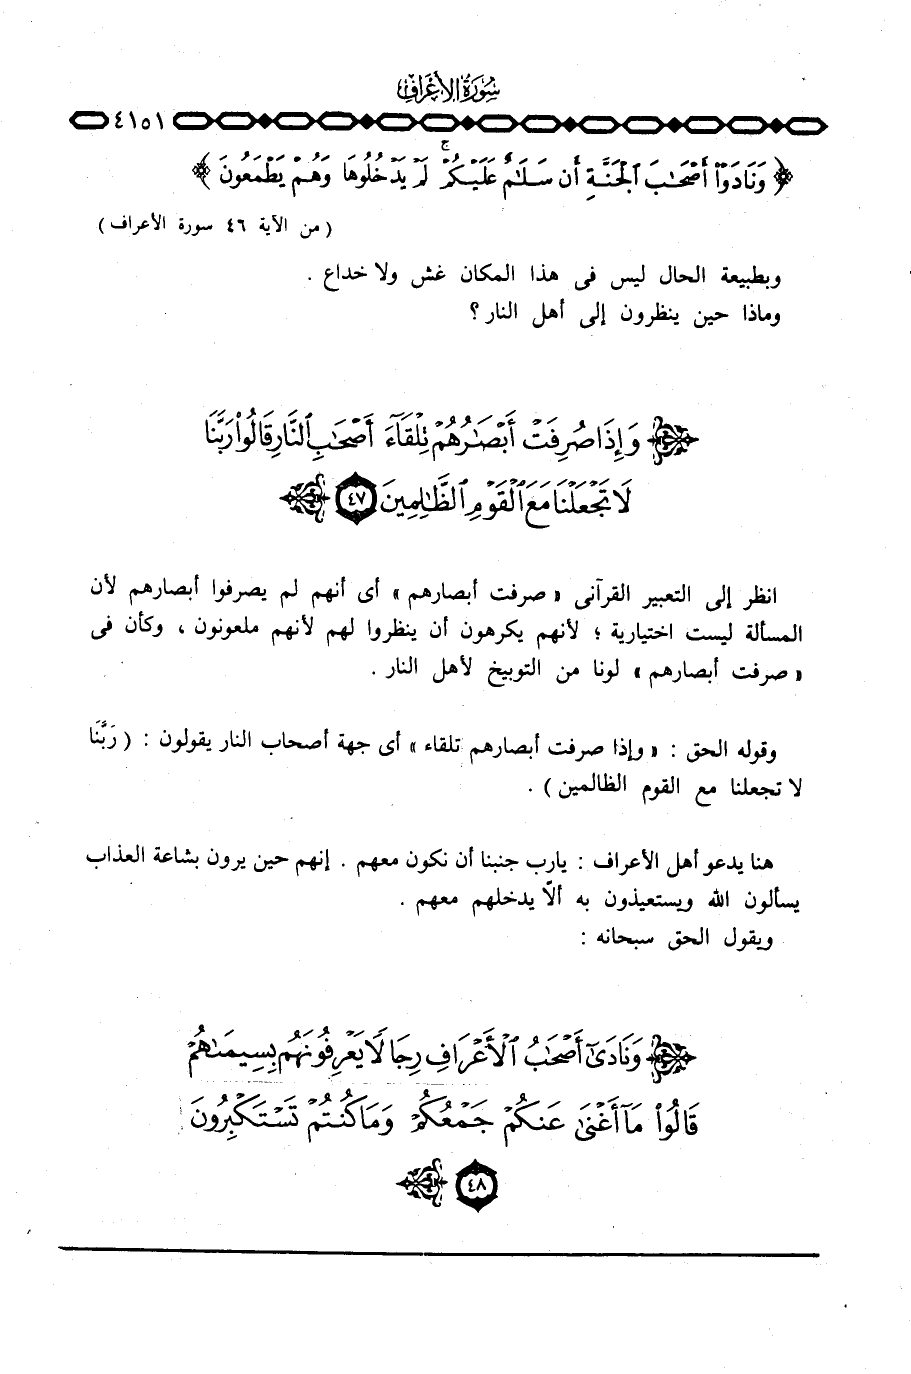 سُورَةُ الأَعْرَافِ
٤١٥١
﴿ وَنَادَوْا۟ أَصْحَٰبَ ٱلْجَنَّةِ أَن سَلَٰمٌ عَلَيْكُمْ ۚ لَمْ يَدْخُلُوهَا وَهُمْ يَطْمَعُونَ ﴾
( من الآية ٤٦ سورة الأعراف )
وبطبيعة الحال ليس فى هذا المكان غش ولا خداع .
وماذا حين ينظرون إلى أهل النار ؟
وَإِذَا صُرِفَتْ أَبْصَٰرُهُمْ تِلْقَآءَ أَصْحَٰبِ ٱلنَّارِ قَالُوا۟ رَبَّنَا
لَا تَجْعَلْنَا مَعَ ٱلْقَوْمِ ٱلظَّٰلِمِينَ ٤٧
انظر إلى التعبير القرآنى « صرفت أبصارهم » أى أنهم لم يصرفوا أبصارهم لأن
المسألة ليست اختيارية ؛ لأنهم يكرهون أن ينظروا لهم لأنهم ملعونون ، وكأن فى
« صرفت أبصارهم » لونا من التوبيخ لأهل النار .
وقوله الحق : « وإذا صرفت أبصارهم تلقاء » أى جهة أصحاب النار يقولون : ( رَبَّنَا
لا تجعلنا مع القوم الظالمين ) .
هنا يدعو أهل الأعراف : يارب جنبنا أن نكون معهم . إنهم حين يرون بشاعة العذاب
يسألون الله ويستعيذون به ألاّ يدخلهم معهم .
ويقول الحق سبحانه :
وَنَادَىٰٓ أَصْحَٰبُ ٱلْأَعْرَافِ رِجَالًا يَعْرِفُونَهُم بِسِيمَىٰهُمْ
قَالُوا۟ مَآ أَغْنَىٰ عَنكُمْ جَمْعُكُمْ وَمَا كُنتُمْ تَسْتَكْبِرُونَ
٤٨